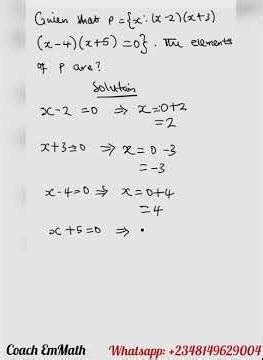 Given that P = {x: (x-2)(x+3)
(x-4)(x+5) =0}. The elements
of P are?
Solution
x-2 =0 ⇒ x=0+2
=2
x+3=0 ⇒ x= 0 -3
= -3
x-4=0 ⇒ x=0+4
=4
x+5=0 ⇒
Coach EmMath Whatsapp: +2348149629004